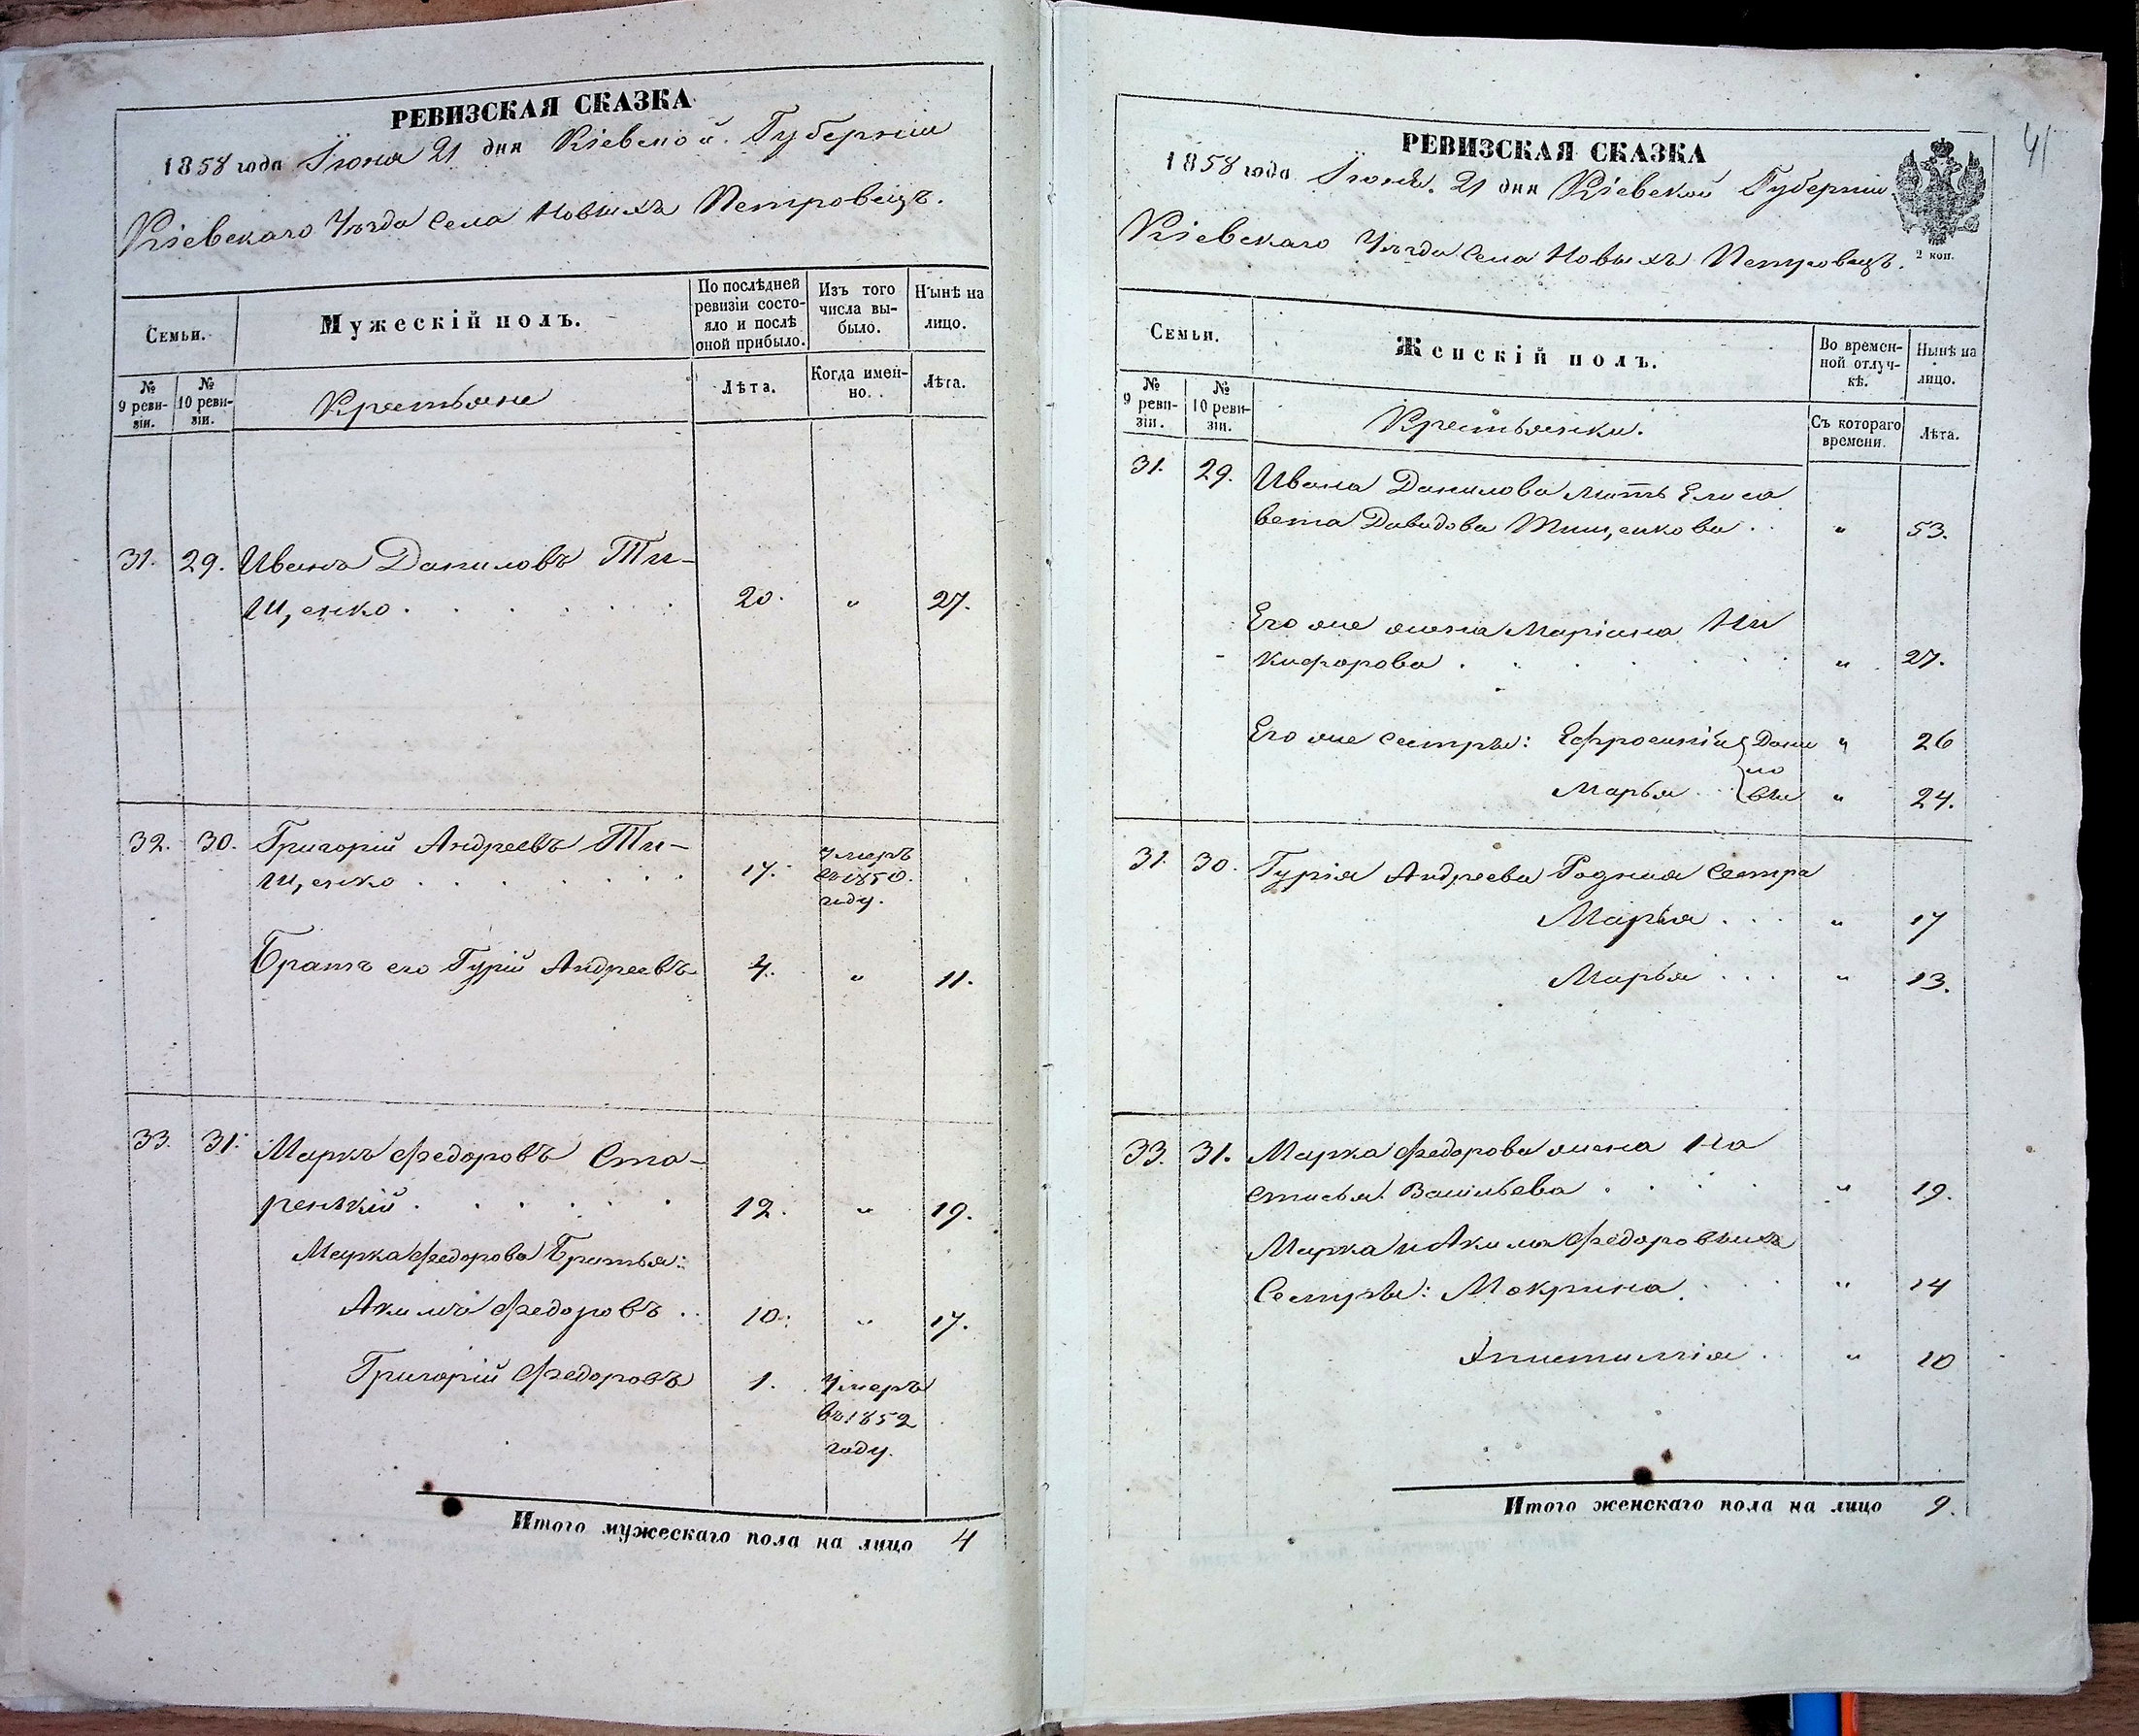 РЕВИЗСКАЯ СКАЗКА
1858 года Іюня 21 дня Кіевской Губерніи
Кіевскаго Уѣзда Села Новыхъ Петровецъ.
Семьи.
Мужескій полъ.
По послѣдней ревизіи состояло и послѣ оной прибыло.
Изъ того числа выбыло.
Нынѣ на лицо.
№ 9 ревизіи.
№ 10 ревизіи.
Крестьяне
Лѣта.
Когда именно.
Лѣта.
31. 29. Иванъ Даниловъ Ти-
щенко . . . . . . 20. " 27.
32. 30. Григорій Андреевъ Ти-
щенко . . . . . . 17. Умеръ въ 1850. году.
Братъ его Гурій Андреевъ 4. " 11.
33. 31. Марко Федоровъ Ста-
ренькій . . . . . 12. " 19.
Марка Федорова Братья:
Акимъ Федоровъ . . 10. " 17.
Григорій Федоровъ 1. Умеръ въ 1852 году.
Итого мужескаго пола на лицо 4
41
РЕВИЗСКАЯ СКАЗКА
1858 года Іюня. 21 дня Кіевской Губерніи
Кіевскаго Уѣзда Села Новыхъ Петровецъ.
2 коп.
Семьи.
Женскій полъ.
Во временной отлучкѣ.
Нынѣ на лицо.
№ 9 ревизіи.
№ 10 ревизіи.
Крестьянки.
Съ котораго времени.
Лѣта.
31. 29. Ивана Данилова мать Елиса
вета Давидова Тищенкова . . " 53.
Его же жена Маріана Ни
кифорова . . . . . . " 27.
Его же сестры: Ефросинія Дани " 26
ло
Марья . . вы " 24.
31. 30. Гурія Андреева Родныя сестры
Марья . . . " 17
Марья . . . " 13.
33. 31. Марка Федорова жена На
стасья Васильева . . . . " 19.
Марка и Акима Федоровыхъ
Сестры: Мокрина . . . " 14
Апистимія . " 10
Итого женскаго пола на лицо 9.